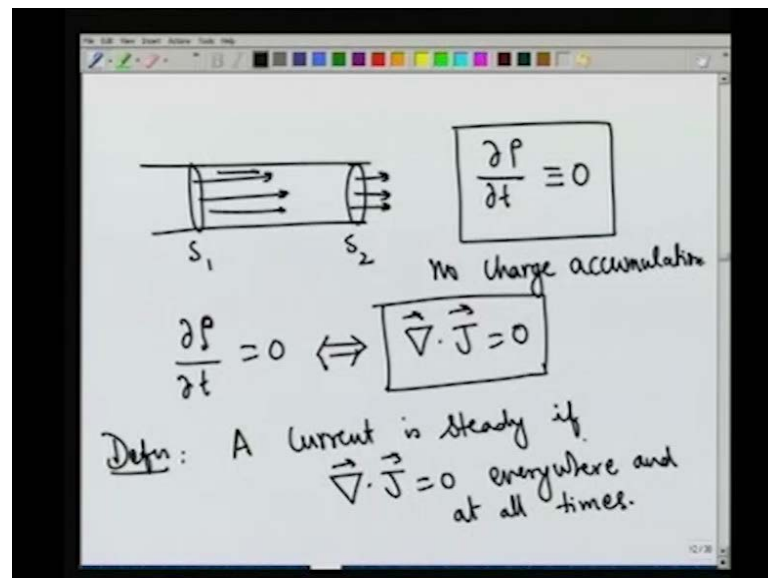 File Edit View Insert Actions Tools Help
∂ρ/∂t ≡ 0
S₁ S₂
no charge accumulation
∂ρ/∂t = 0 ⇔ ∇⃗·J⃗ = 0
Defn: A current is steady if
∇⃗·J⃗ = 0 everywhere and
at all times.
12/38